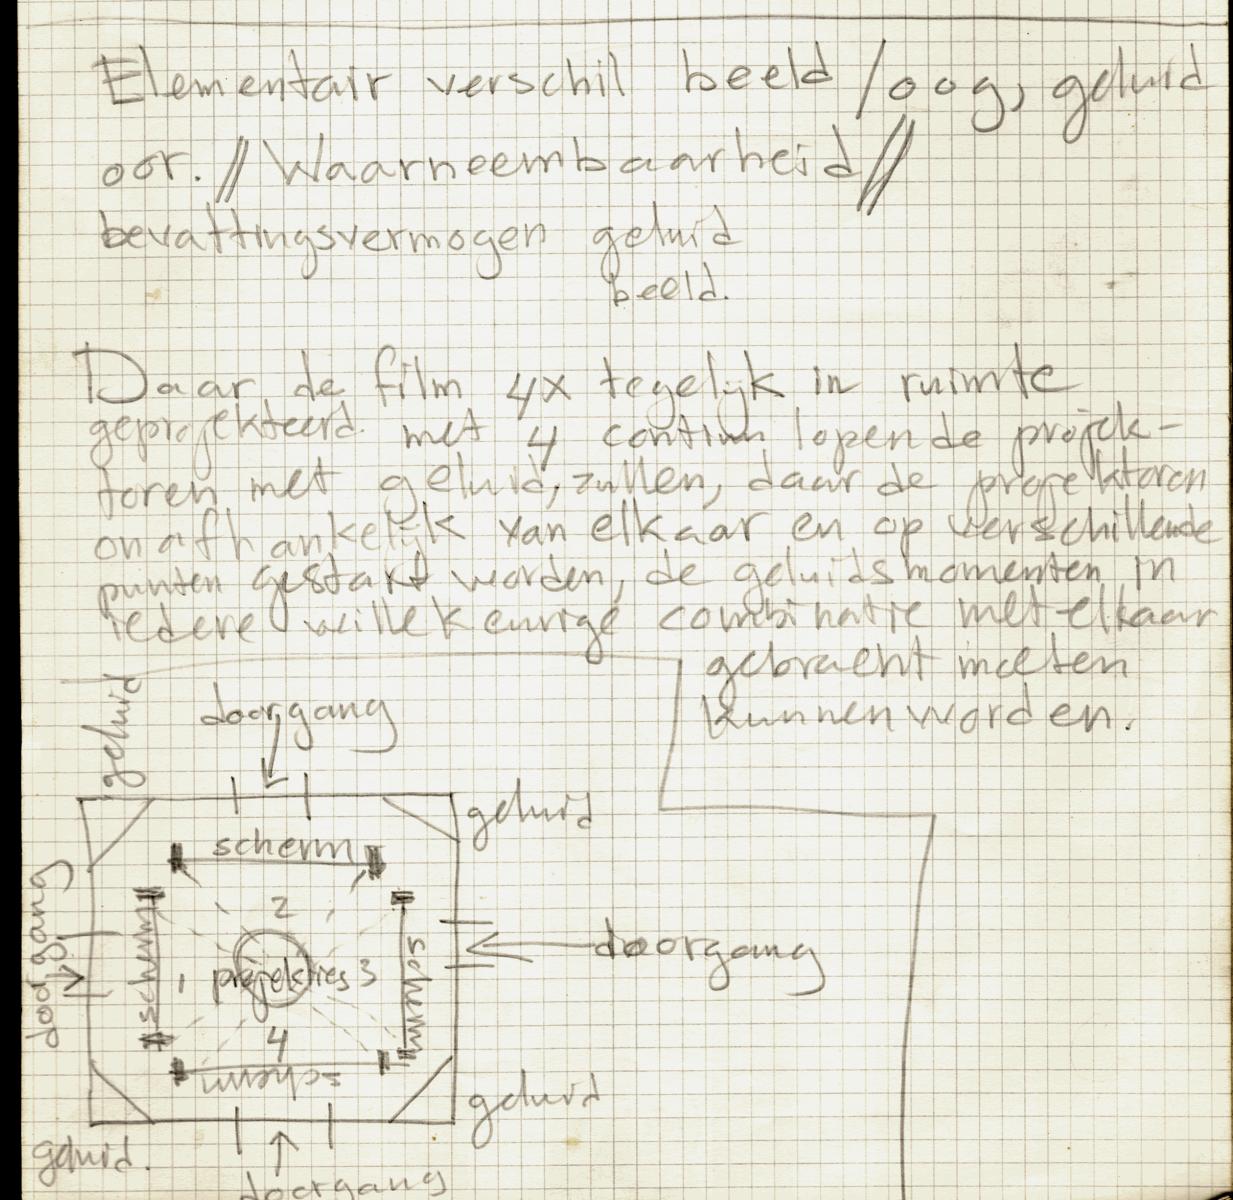 Elementair verschil beeld / oog, geluid
oor. // Waarneembaarheid //
bevattingsvermogen geluid
beeld.
Daar de film 4x tegelijk in ruimte
geprojekteerd met 4 continu lopende projek-
toren met geluid, zullen, daar de projektoren
onafhankelijk van elkaar en op verschillende
punten gestart worden, de geluidsmomenten in
iedere willekeurige combinatie met elkaar
gebracht moeten
kunnen worden.
geluid
doorgang
geluid
scherm
doorgang
scherm
2
1 projekties 3
scherm
doorgang
4
scherm
geluid
geluid.
doorgang